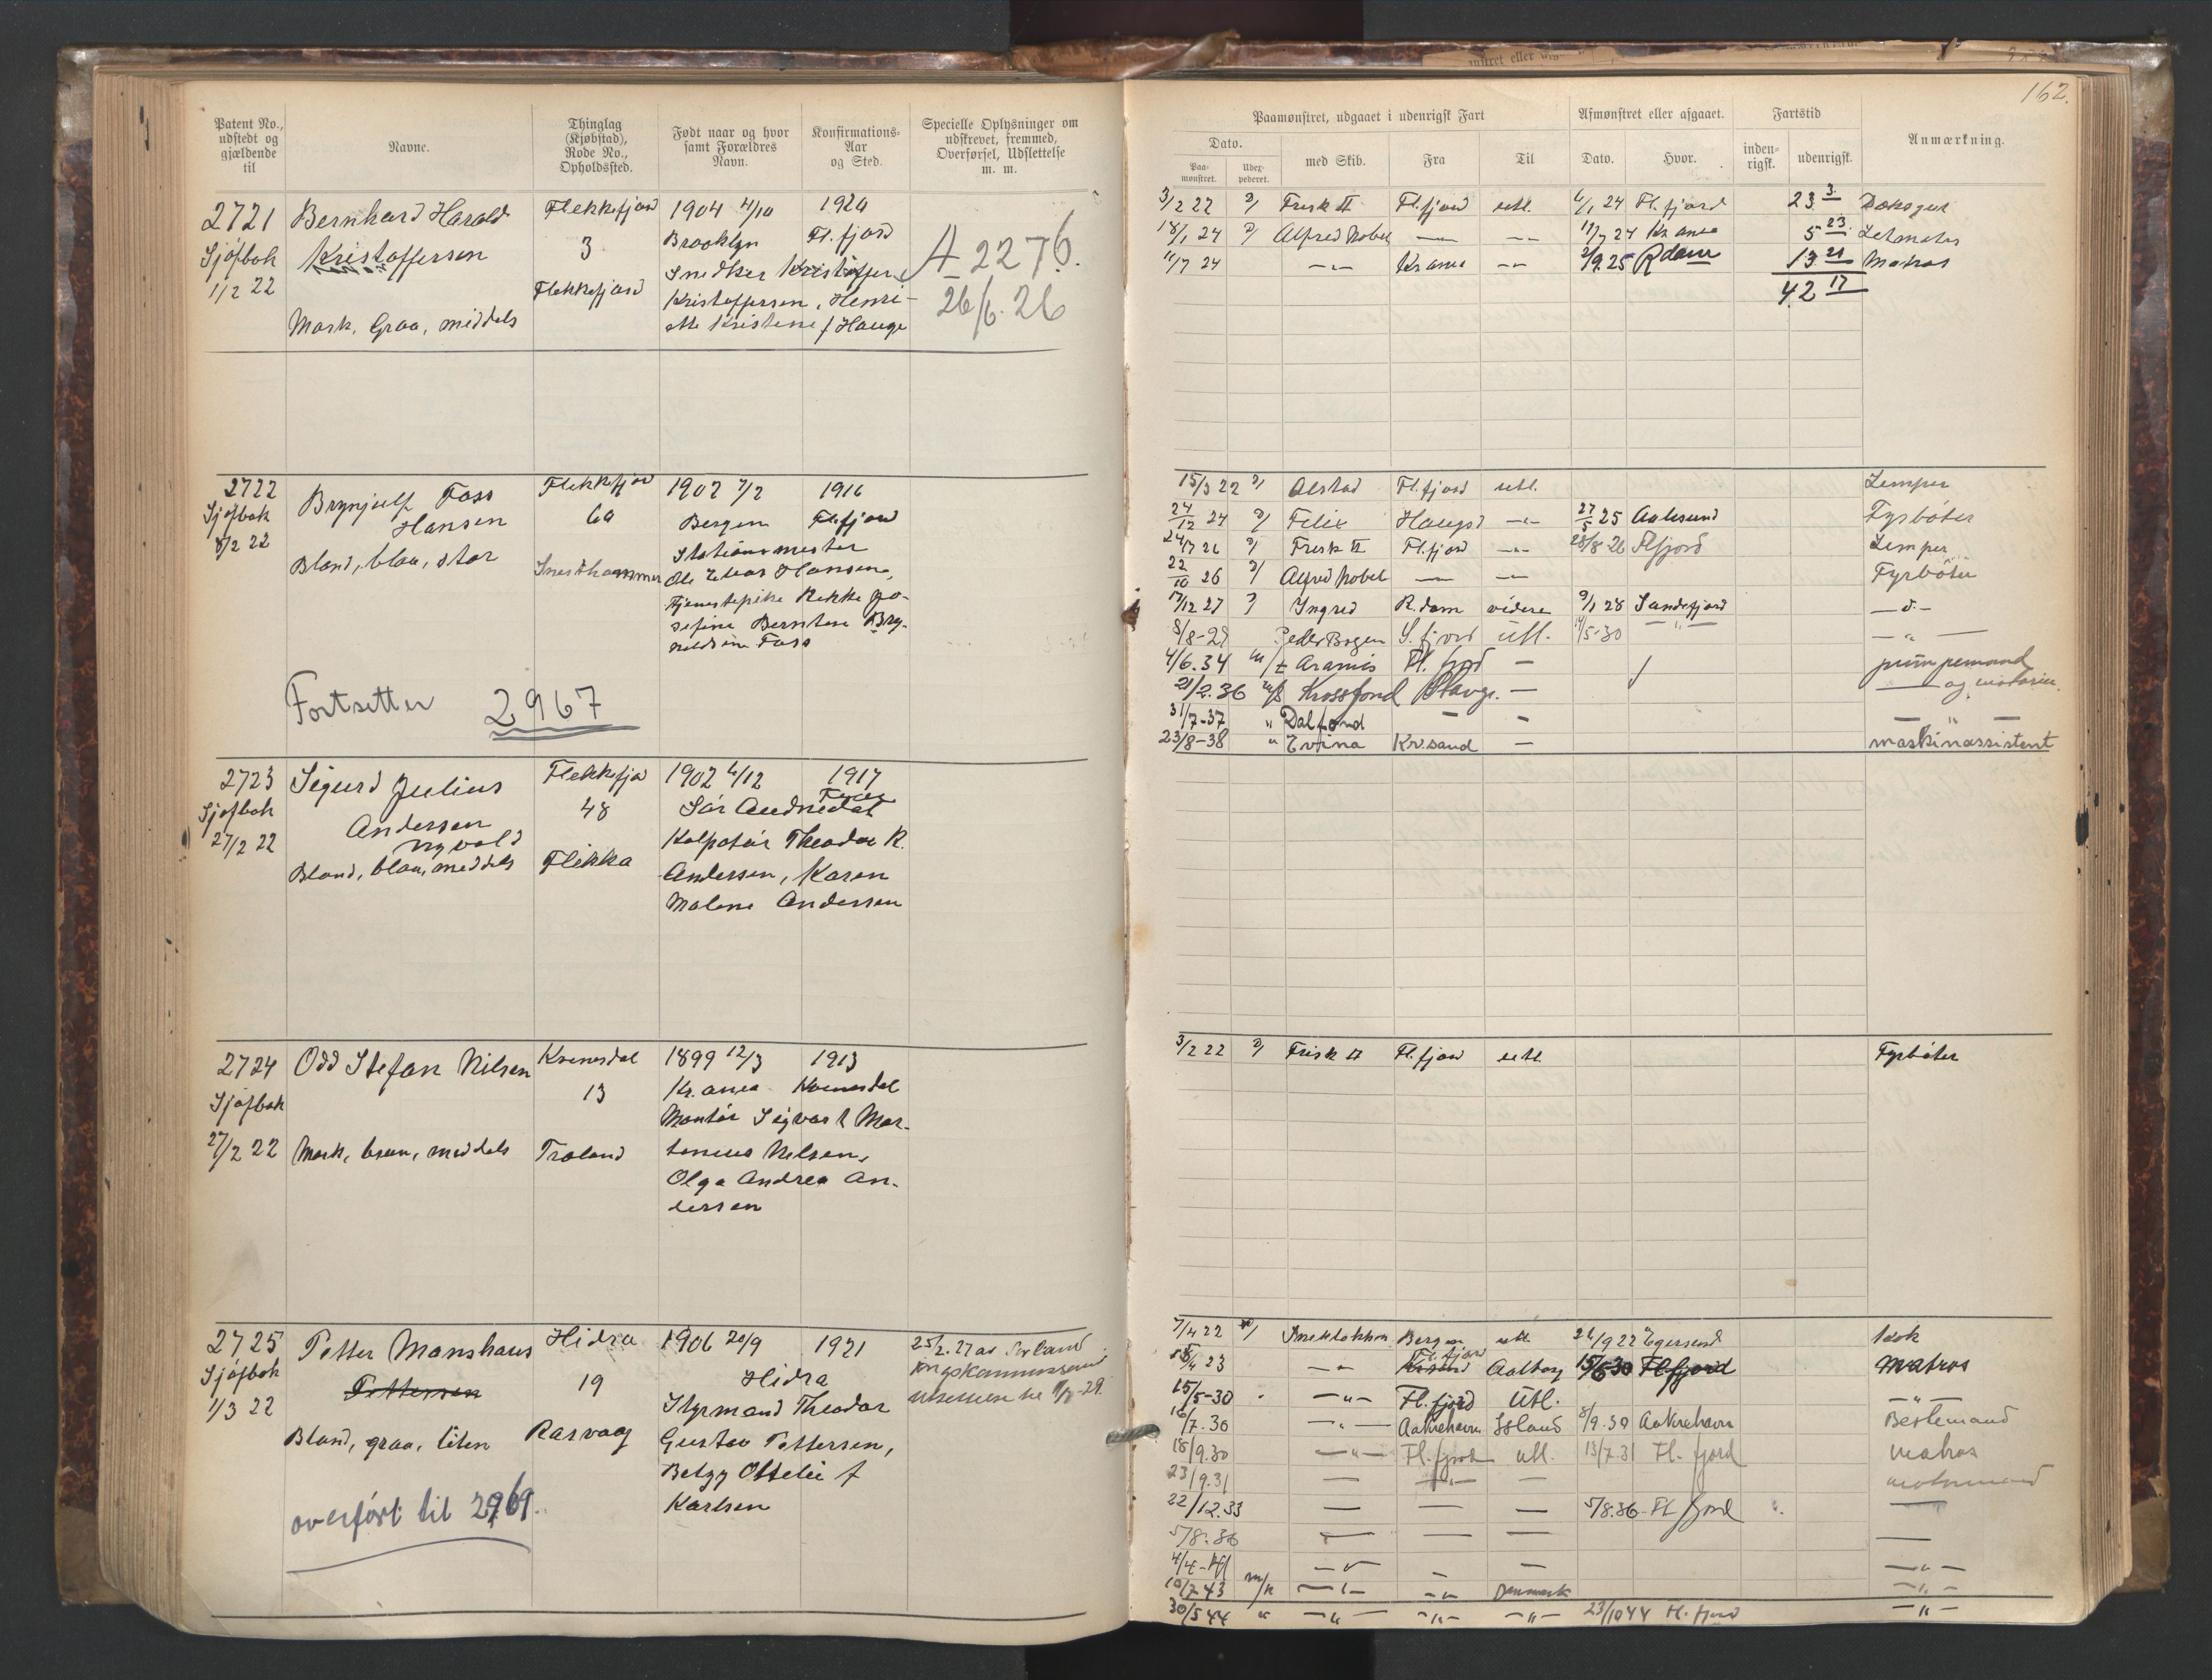 162.
Patent No., udstedt og gjældende til
Navne.
Thinglag (Kjøbstad), Rode No., Opholdssted.
Født naar og hvor samt Forældres Navn.
Konfirmations-Aar og Sted.
Specielle Oplysninger om udskrevet, fremmed, Overførsel, Udslettelse m. m.
Paamønstret, udgaaet i udenrigsk Fart
Dato.
Paa-mønstret.
Udex-pederet.
med Skib.
Fra
Til
Afmønstret eller afgaaet.
Dato.
Hvor.
Fartstid
inden-rigsk.
udenrigsk.
Anmærkning.
2721 Bernhard Harald Flekkefjord 1904 4/10 1920
Sjøfbok Kristoffersen 3 Brooklyn Fl.fjord
1/2 22 Flekkefjord Snedker Kristoffer
Kristoffersen, Henri-
Mørk, Graa, middels ette Kristene f Hauge
A 2276.
26/6. 26
3/2 22 Frisk II Fl.fjord utl. 6/1 24 Fl.fjord 23 3 Dæksgut
18/1 24 Alfred Nobel — — 11/7 24 Kr ania 5 23 Letmatros
11/7 24 — Kr ania — 2/9.25 Rdam 13 21 Matros
42 17
2722 Brynjulf Foss Flekkefjord 1902 7/2 1916
Sjøfbok Hansen 60 Bergen Fl.fjord
8/2 22 Stationsmester
Blond, blaa, stor Ole Hansen,
Tjenestepike Rekke Jo-
sefine Berntine Bry-
Foss
Fortsetter 2967
15/3 22 Olstad Fl.fjord utl. Lemper
24/12 24 Felix Hauges — 27/5 25 Aalesund Fyrbøter
24/7 26 Frisk II Fl.fjord — 28/8 26 Flfjord Lemper
22/10 26 Alfred Nobel — — Fyrbøter
17/12 27 Ingrid R.dam videre 9/1 28 Sandefjord — d. —
8/8-29 Peder Bogen S. fjord utl. 14/5-30 — " — — " —
4/6.34 m/t Aramis Fl. fjord — pumpemand
21/2.36 Krossfond Stavgr. — — og motorm.
31/7-37 " Dalfond — — — " —
23/8-38 " Evina Kr.sand — maskinassistent
2723 Sigurd Julius Flekkefjord 1902 6/12 1917
Sjøfbok Andersen 48 Sør Audnedal
27/2 22 Nyvold Kolportør Theodor R.
Blond, blaa, middels Flikka Andersen, Karen
Malene Andersen
2724 Odd Stefan Nilsen Kvinesdal 1899 12/3 1913
Sjøfbok 13 Kr. ania Kvinesdal
Montør Sigvart Mar-
27/2 22 Mørk, brun, middels Træland tinius Nilsen,
Olga Andrea An-
dersen
3/2 22 Frisk II Fl.fjord utl. Fyrbøter
2725 Petter Monshaus Hidra 1906 20/9 1921
Sjøfbok Pettersen 19 Hidra
1/3 22 Styrmand Theodor
Blond, graa, liten Rasvaag Gustav Pettersen,
Betzy Ottelie f
Karlsen
overført til 2969.
7/4 22 Bergen utl. 26/9 22 Egersund Kok
4 23 — Fl.fjord Aalborg 15/5 30 Flfjord Matros
15/5-30 — " — Fl. fjord Utl. — " —
16/7.30 — " — Aakrehavn Island 8/9.30 Aakrehavn Bestemand
18/9.30 — " — Fl. fjord utl. 13/7.31 Fl. fjord Matros
23/9.31 — — " —
22/12.33 — — — 5/8.36 Fl fjord —
5/8.36 — — — —
4/4- — — — — " —
10/7 43 m/k — " — — " — Danmark — " —
30/5 44 " — " — — " — — " — 23/10 44 Fl. fjord — " —